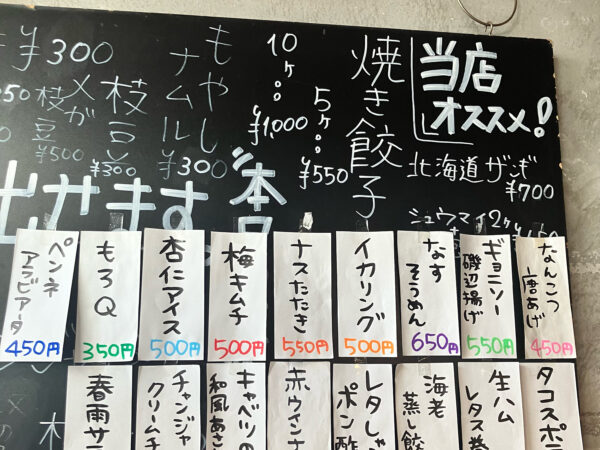 当店
オススメ!
北海道ザンギ
¥700
シュウマイ2ヶ
焼き餃子
5ヶ…
¥550
10ヶ…
¥1,000
もやし
ナムル
¥300
枝豆
¥300
メガ
枝豆
¥500
¥300
本日
出せます
なんこつ
唐あげ
450円
ギョニソー
磯辺揚げ
550円
なす
そうめん
650円
イカリング
500円
ナスたたき
550円
梅キムチ
500円
杏仁アイス
500円
もろQ
350円
ペンネ
アラビアータ
450円
タコスポテ
生ハム
レタス巻
海老
蒸し餃
レタしゃ
ポン酢
赤ウインナ
キャベツの
和風あさ
チャンジャ
クリームチ
春雨サラ